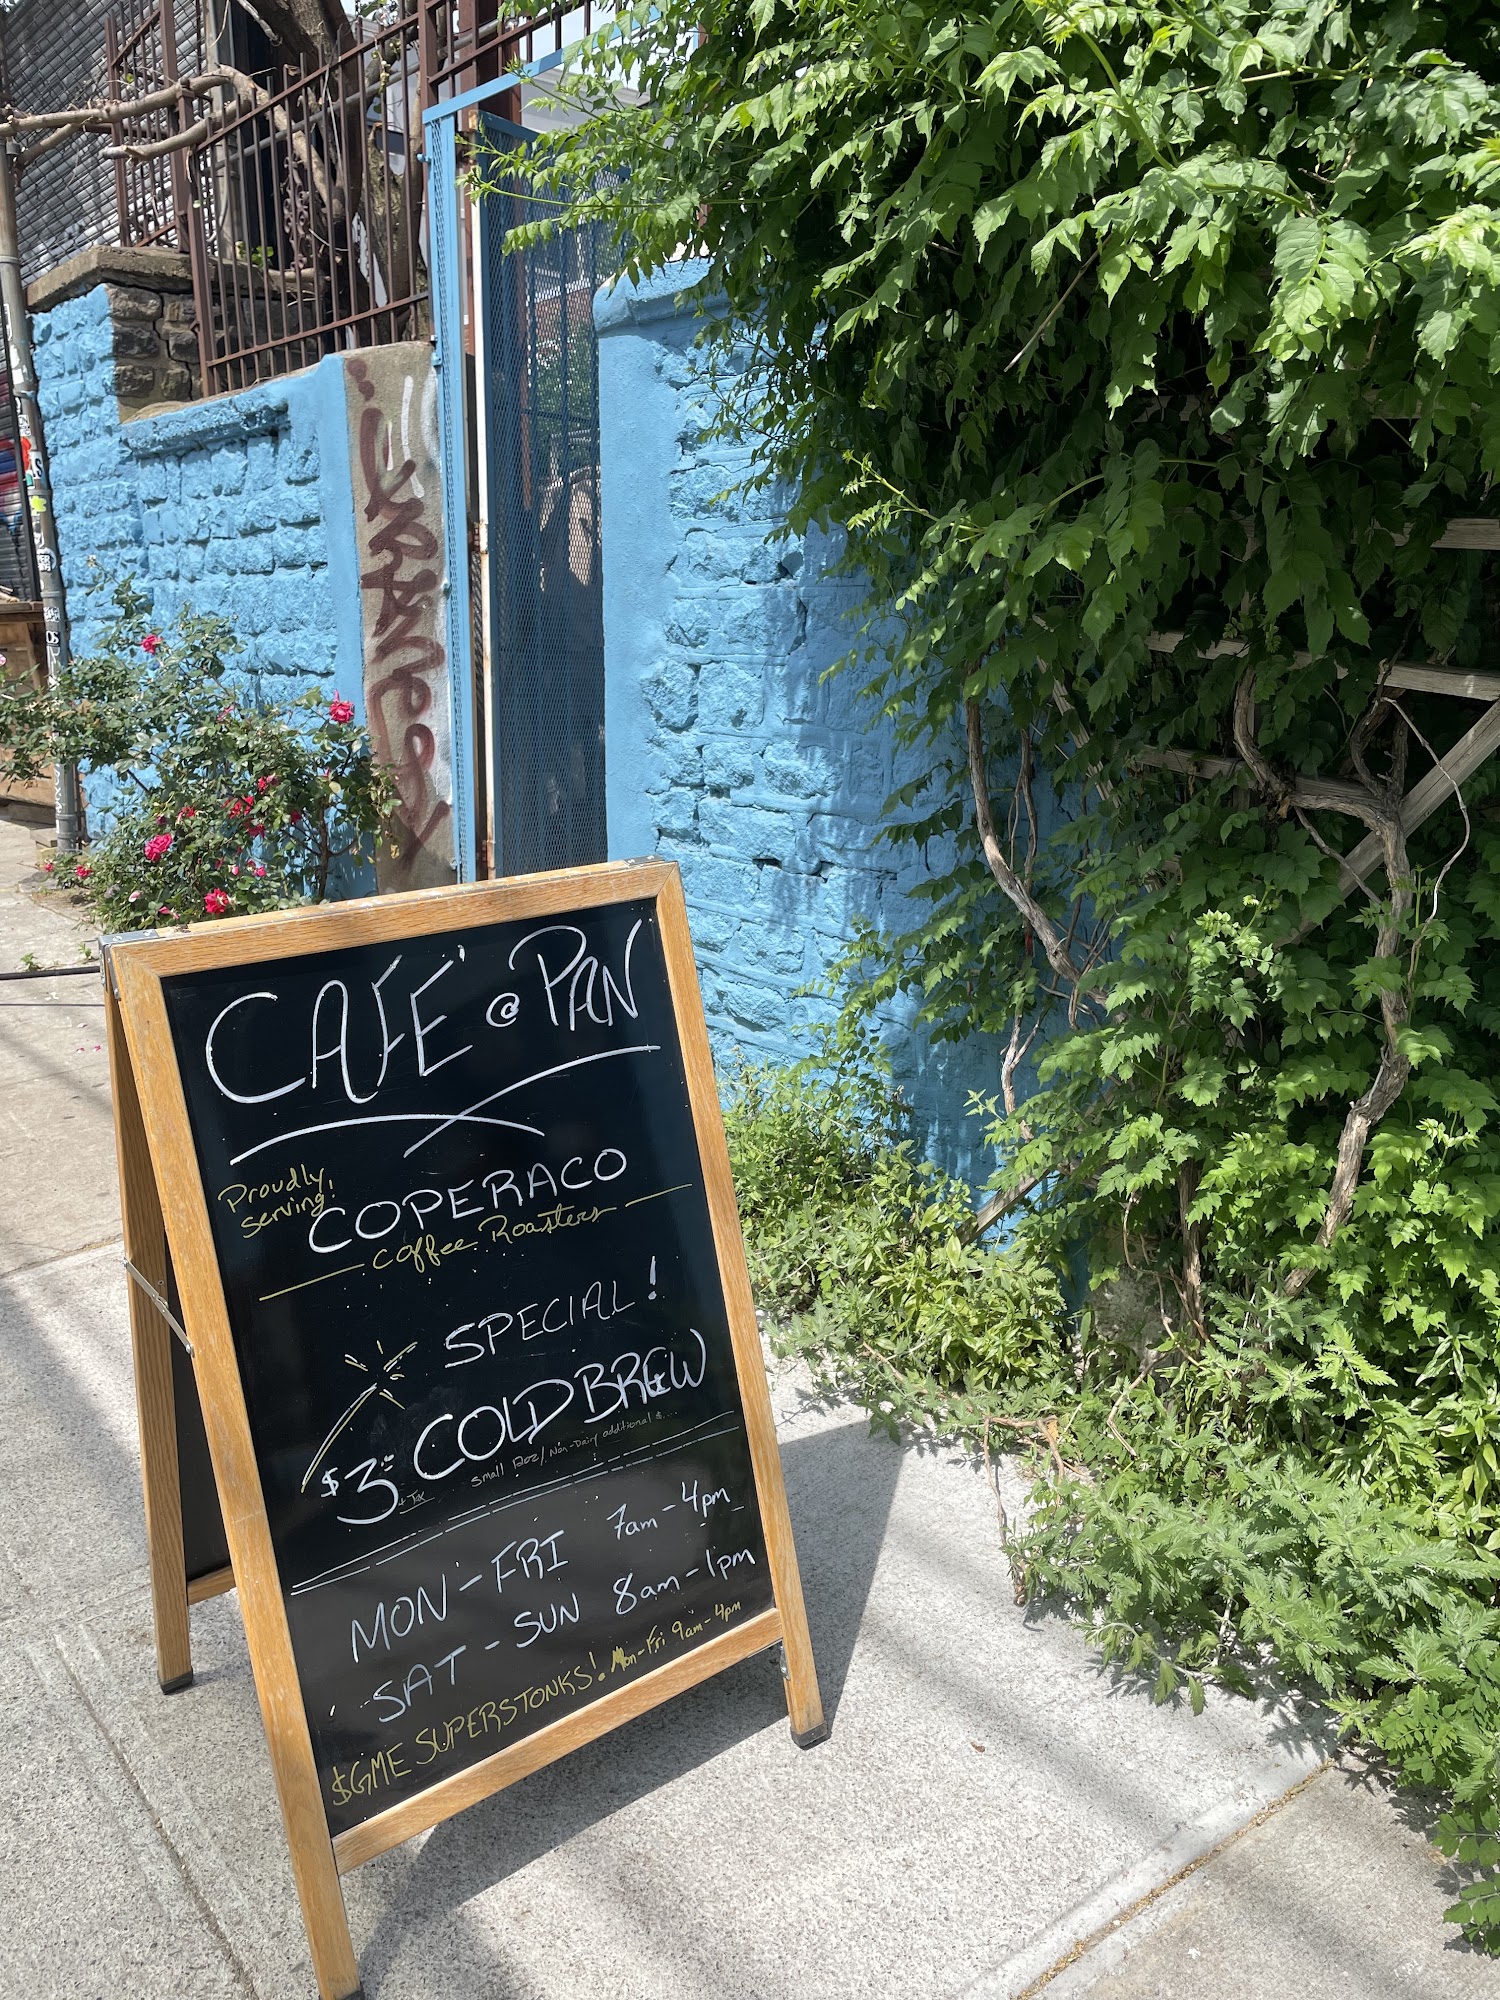 CAFÉ @ PAN
Proudly
serving!
COPERACO
coffee Roasters
SPECIAL!
$3.00 COLD BREW
+ Tax
small 12oz/ Non-Dairy additional $....
MON-FRI 7am-4pm
SAT-SUN 8am-1pm
$GME SUPERSTONKS! Mon-Fri 9am-4pm